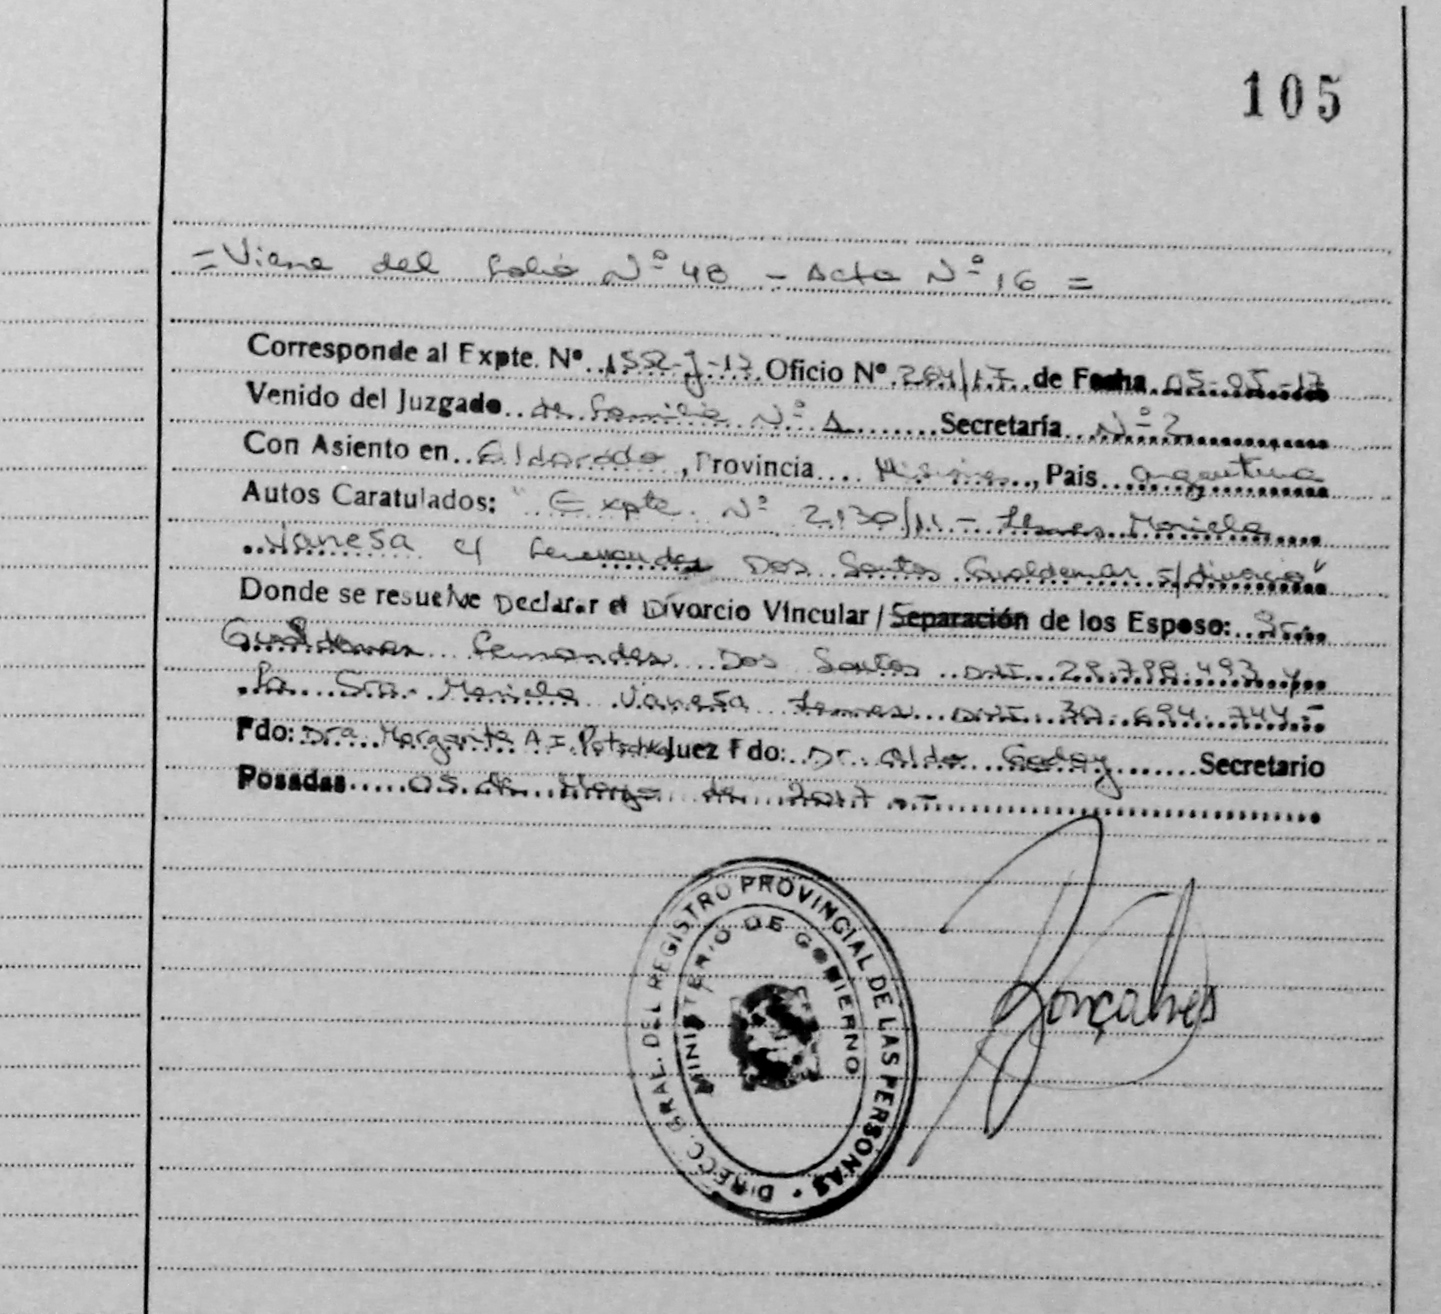 105
= Viene del folio Nº 48 - Acta Nº 16 =
Corresponde al Expte. Nº 1552-J-17 Oficio Nº 264/17 de Fecha 05-05-17
Venido del Juzgado de Familia Nº 1 Secretaría Nº 2
Con Asiento en Eldorado, Provincia Misiones, País Argentina
Autos Caratulados: "Expte. Nº 2130/11 - Mariela
Vanesa c/ Fernandes Dos Santos Gualdemar s/divorcio"
Donde se resuelve Declarar el Divorcio Vincular / Separación de los Esposo: Sr.
Gualdemar Fernandes Dos Santos DNI 28.798.493 y
la Sra. Mariela Vanesa DNI 30.694.744.-
Fdo: Dra. Margarita A. I. Juez Fdo: Dr. Aldo Godoy Secretario
Posadas 05 de Mayo de 2017.-
DIRECC. GRAL. DEL REGISTRO PROVINCIAL DE LAS PERSONAS
MINISTERIO DE GOBIERNO
Gonçalves